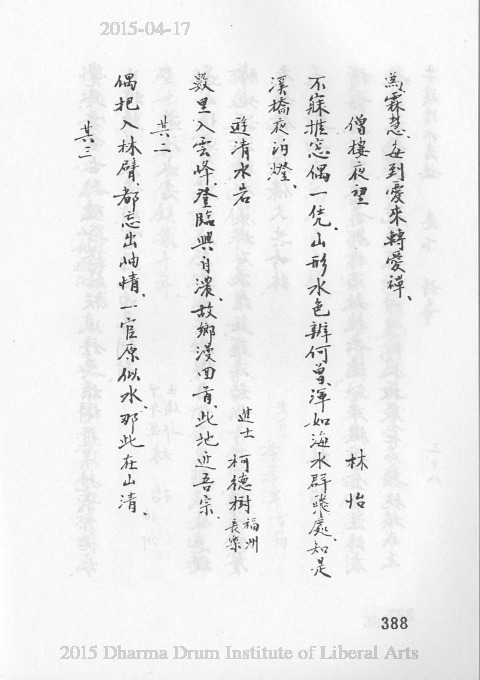 2015-04-17
為霖慧、每到愛來轉愛禪、
僧樓夜望　林怡
不寐推窓偶一凭、山形水色辨何曾、渾如海水群飛處、知是
溪橋夜泊燈、
遊清水岩　進士 柯德樹 福州長樂
數里入雲峰、登臨興自濃、故鄉漫回首、此地近吾宗、
其二
偶把入林臂、都忘出岫情、一官原似水、那此在山清、
其三
388
2015 Dharma Drum Institute of Liberal Arts